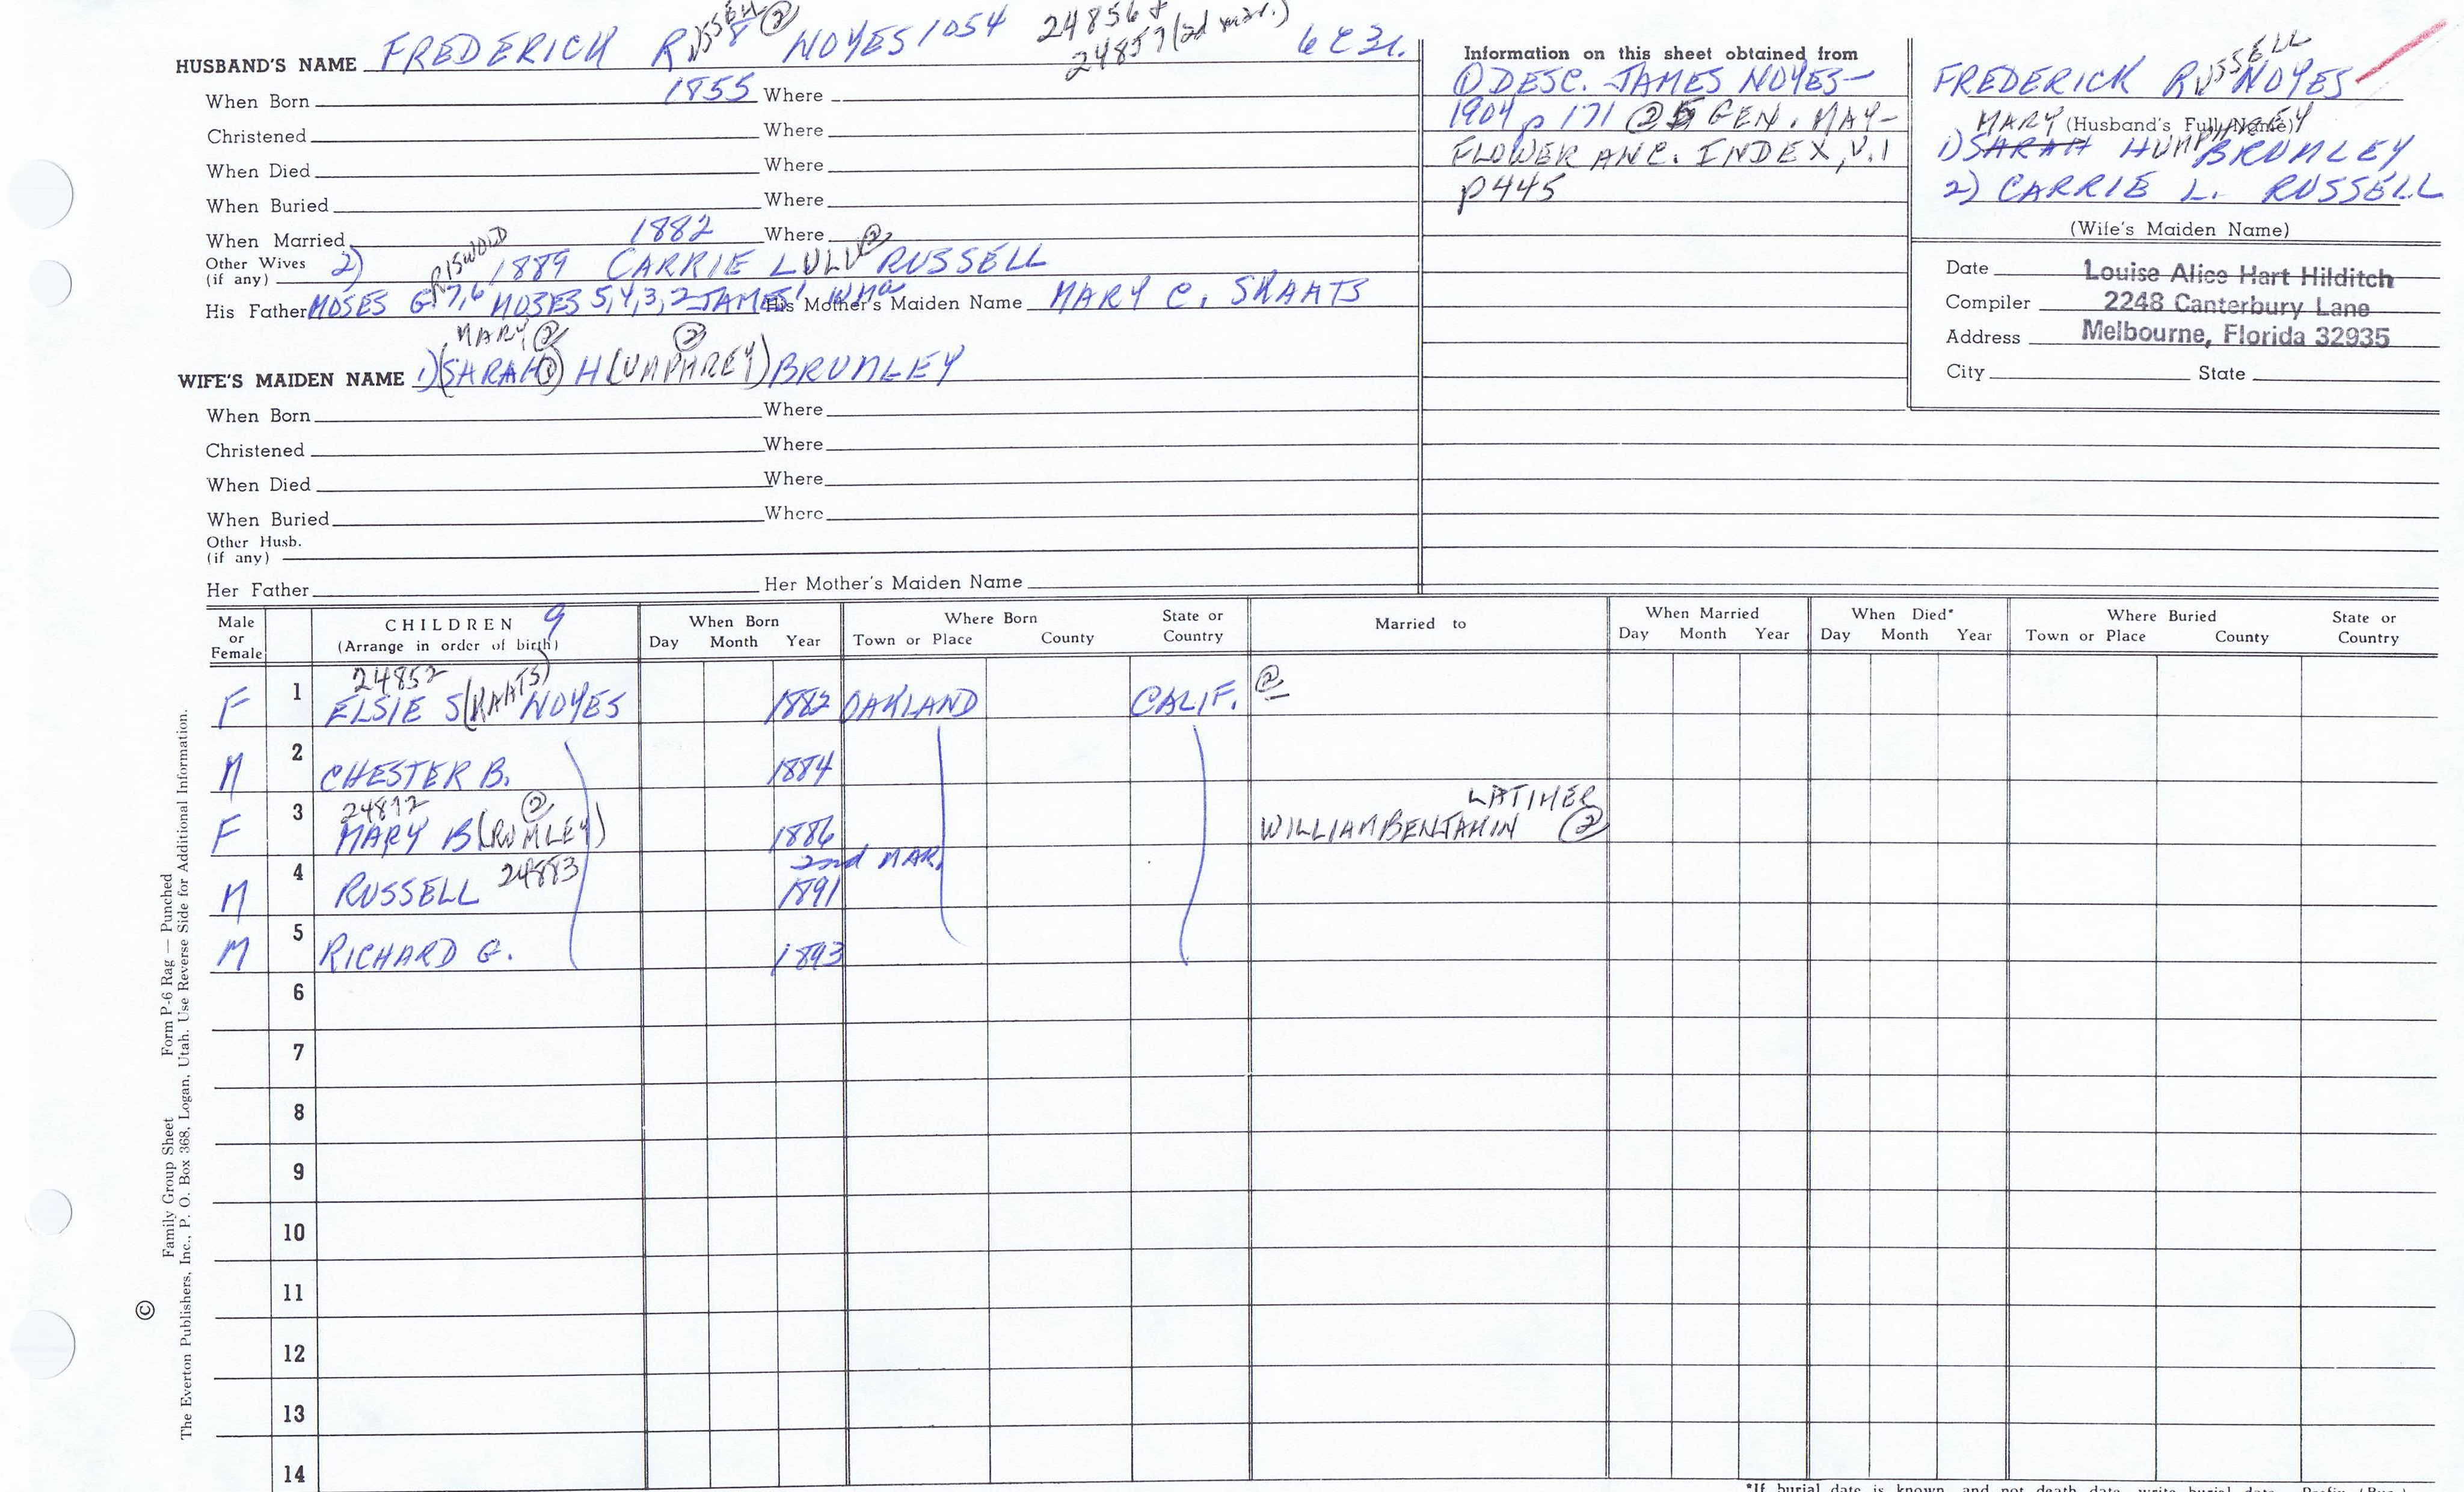 HUSBAND'S NAME FREDERICK RUSSELL ② 8 NOYES 1054 24856 + 24857 (2d mar.) 6 C 3c.
When Born 1855 Where
Christened Where
When Died Where
When Buried Where
When Married 1882 Where
Other Wives (if any) 2) 1889 CARRIE LULU ② RUSSELL
His Father MOSES GRISWOLD 7,6 MOSES 5,4,3,2 JAMES 1 WM a His Mother's Maiden Name MARY C. SKAATS
MARY ② ②
WIFE'S MAIDEN NAME 1) (SARAH ①) H(UMPHREY) BRUMLEY
When Born Where
Christened Where
When Died Where
When Buried Where
Other Husb. (if any)
Her Father Her Mother's Maiden Name
Information on this sheet obtained from
① DESC. JAMES NOYES-
1904 p 171 ② 5 GEN. MAY-
FLOWER ANC. INDEX, V.1
p 445
FREDERICK RUSSELL NOYES
(Husband's Full Name)
1) SARAH MARY HUMPHREY BRUMLEY
2) CARRIE L. RUSSELL
(Wife's Maiden Name)
Date Louise Alice Hart Hilditch
Compiler 2248 Canterbury Lane
Address Melbourne, Florida 32935
City State
Male or Female CHILDREN 9 (Arrange in order of birth) When Born Day Month Year Where Born Town or Place County State or Country Married to When Married Day Month Year When Died* Day Month Year Where Buried Town or Place County State or Country
F 1 24852 ELSIE S(KAATS) NOYES 1882 OAKLAND CALIF. ②
M 2 CHESTER B. 1884
F 3 24872 MARY B(RUMLEY) ② 1886 WILLIAM BENJAMIN LATIMER ②
2nd MAR.
M 4 RUSSELL 24883 1891
M 5 RICHARD G. 1893
6
7
8
9
10
11
12
13
14
*If burial date is known, and not death date, write burial date.
© Family Group Sheet Form P-6 Rag — Punched
The Everton Publishers, Inc., P. O. Box 368, Logan, Utah. Use Reverse Side for Additional Information.